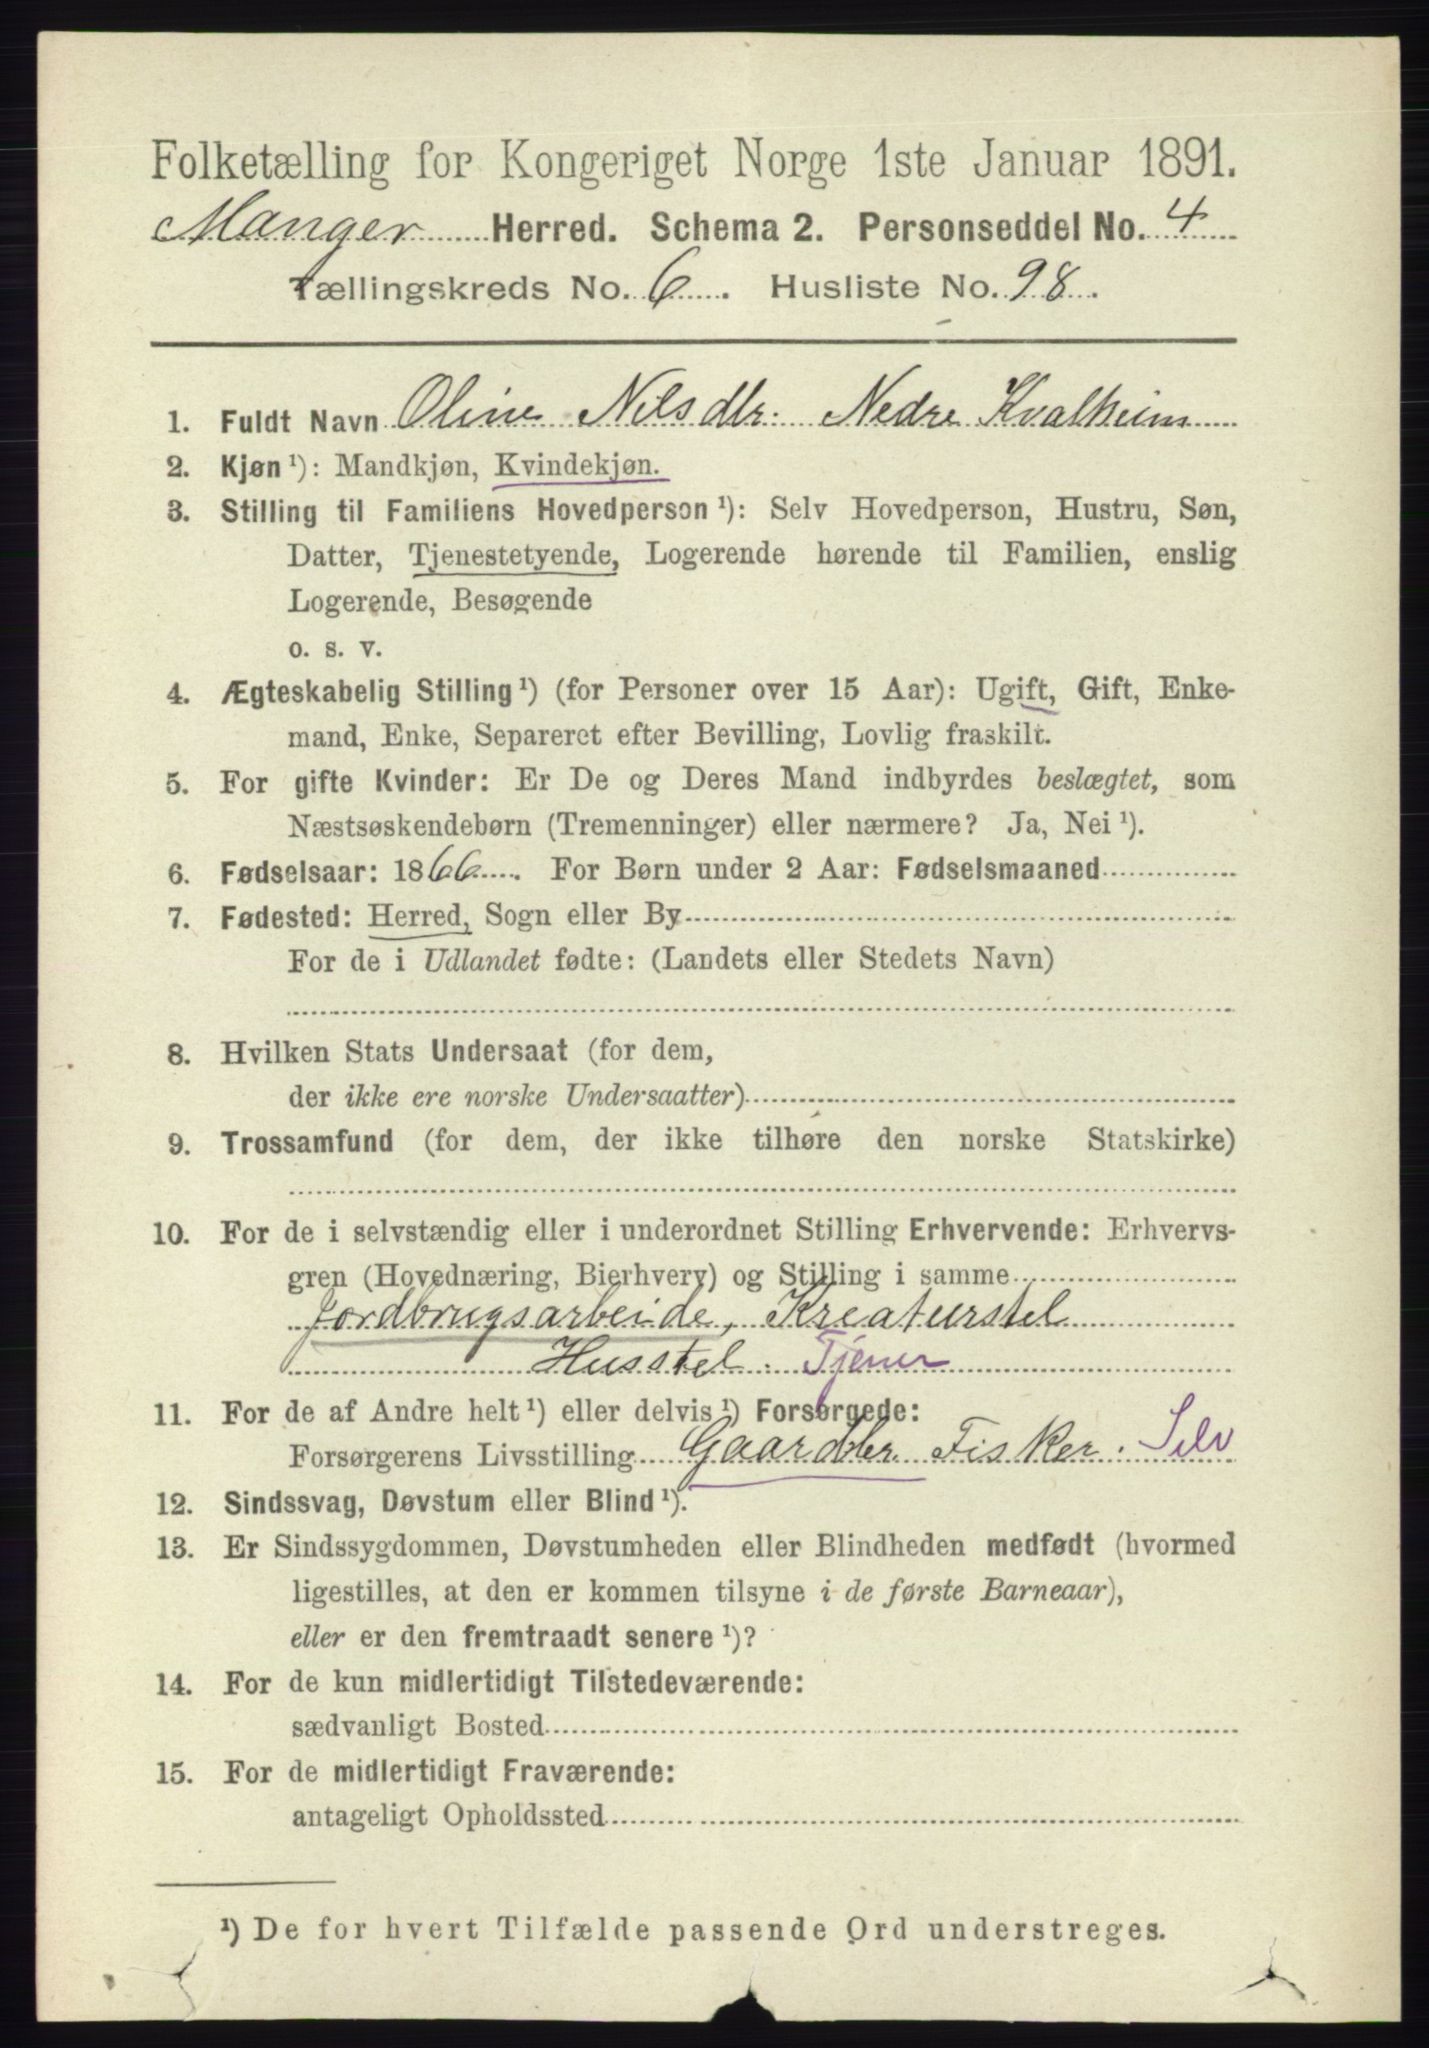 Folketælling for Kongeriget Norge 1ste Januar 1891.
Manger Herred. Schema 2. Personseddel No. 4
Tællingskreds No. 6. Husliste No. 98.
1. Fuldt Navn Oline Nilsdtr. Nedre Kvalheim
2. Kjøn ¹): Mandkjøn, Kvindekjøn.
3. Stilling til Familiens Hovedperson ¹): Selv Hovedperson, Hustru, Søn,
Datter, Tjenestetyende, Logerende hørende til Familien, enslig
Logerende, Besøgende
o. s. v.
4. Ægteskabelig Stilling ¹) (for Personer over 15 Aar): Ugift, Gift, Enke-
mand, Enke, Separeret efter Bevilling, Lovlig fraskilt.
5. For gifte Kvinder: Er De og Deres Mand indbyrdes beslægtet, som
Næstsøskendebørn (Tremenninger) eller nærmere? Ja, Nei ¹).
6. Fødselsaar: 1866. For Børn under 2 Aar: Fødselsmaaned
7. Fødested: Herred, Sogn eller By
For de i Udlandet fødte: (Landets eller Stedets Navn)
8. Hvilken Stats Undersaat (for dem,
der ikke ere norske Undersaatter)
9. Trossamfund (for dem, der ikke tilhøre den norske Statskirke)
10. For de i selvstændig eller i underordnet Stilling Erhvervende: Erhvervs-
gren (Hovednæring, Bierhverv) og Stilling i samme
Jordbrugsarbeide, Kreaturstel
Husstel. Tjener
11. For de af Andre helt ¹) eller delvis ¹) Forsørgede:
Forsørgerens Livsstilling Gaardbr. Fisker. Selv
12. Sindssvag, Døvstum eller Blind ¹).
13. Er Sindssygdommen, Døvstumheden eller Blindheden medfødt (hvormed
ligestilles, at den er kommen tilsyne i de første Barneaar),
eller er den fremtraadt senere ¹)?
14. For de kun midlertidigt Tilstedeværende:
sædvanligt Bosted
15. For de midlertidigt Fraværende:
antageligt Opholdssted
¹) De for hvert Tilfælde passende Ord understreges.